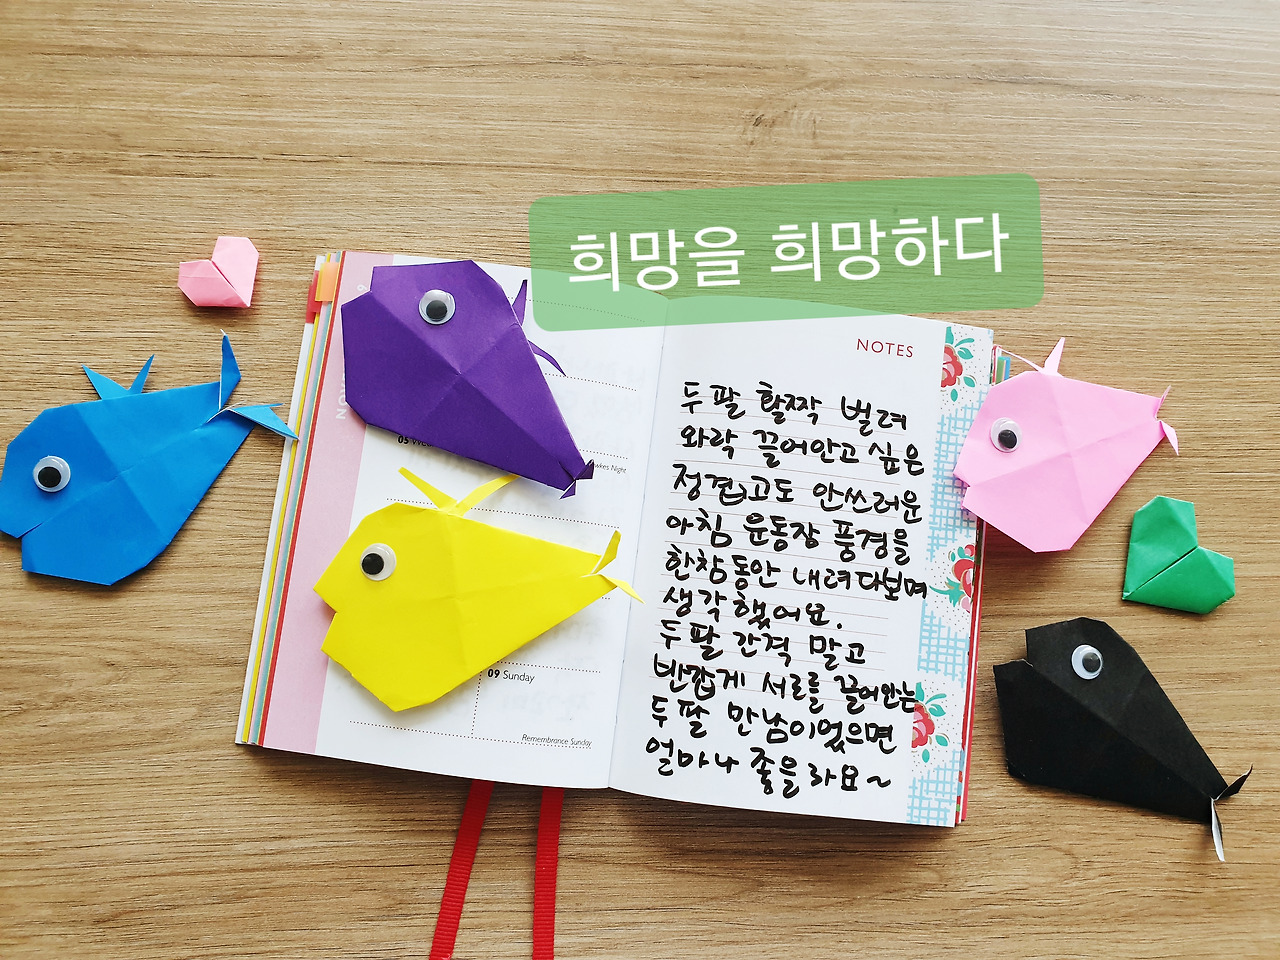 희망을 희망하다
NOTES
두 팔 활짝 벌려
와락 끌어안고 싶은
정겹고도 안쓰러운
아침 운동장 풍경을
한참동안 내려다보며
생각했어요.
두 팔 간격 말고
반갑게 서로를 끌어안는
두 팔 만남이었으면
얼마나 좋을까요~
05
09 Sunday
Remembrance Sunday